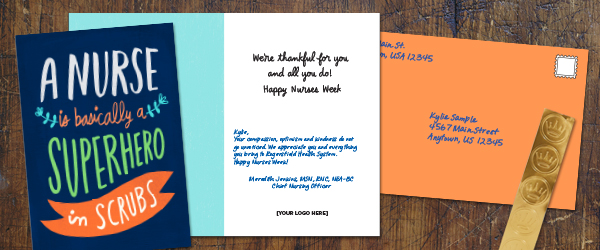 A NURSE
is basically a
SUPERHERO
in SCRUBS
We're thankful for you
and all you do!
Happy Nurses Week
Kylie,
Your compassion, optimism and kindness do not
go unnoticed. We appreciate you and everything
you bring to Rogersfield Health System.
Happy Nurses Week!
Meredith Jenkins, MSN, RNC, NEA-BC
Chief Nursing Officer
[YOUR LOGO HERE]
ain St.
n, USA 12345
Kylie Sample
4567 Main Street
Anytown, US 12345